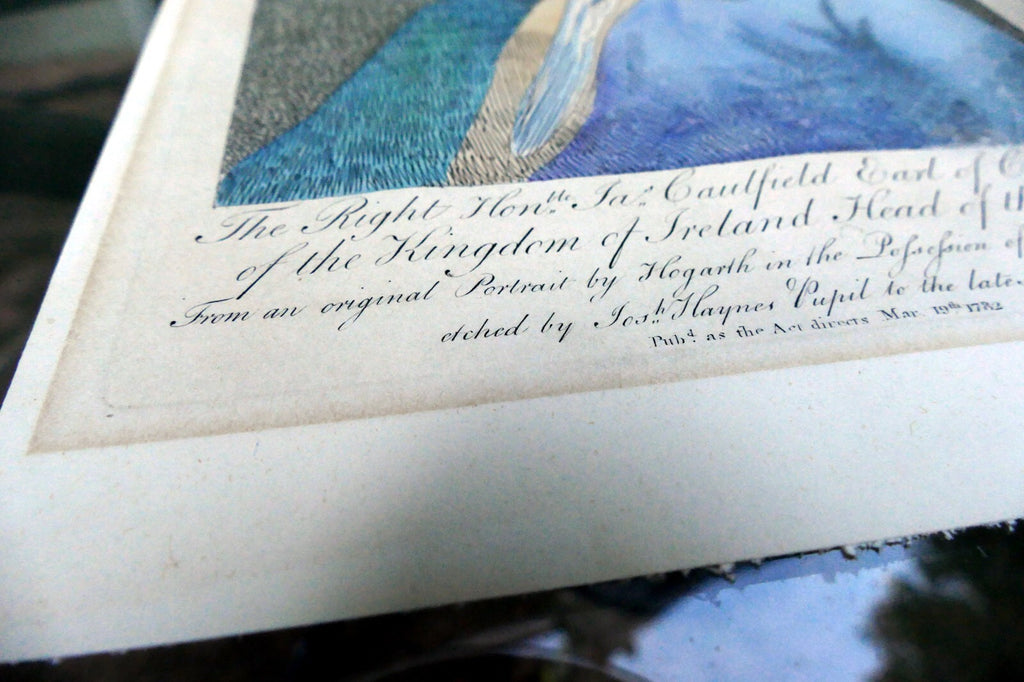 The Right Hon.ble Ja.s Caulfield Earl of
of the Kingdom of Ireland Head of
From an original Portrait by Hogarth in the Poſseſsion of
etched by Jos.h Haynes Pupil to the late
Pub.d as the Act directs Mar. 19th 1782